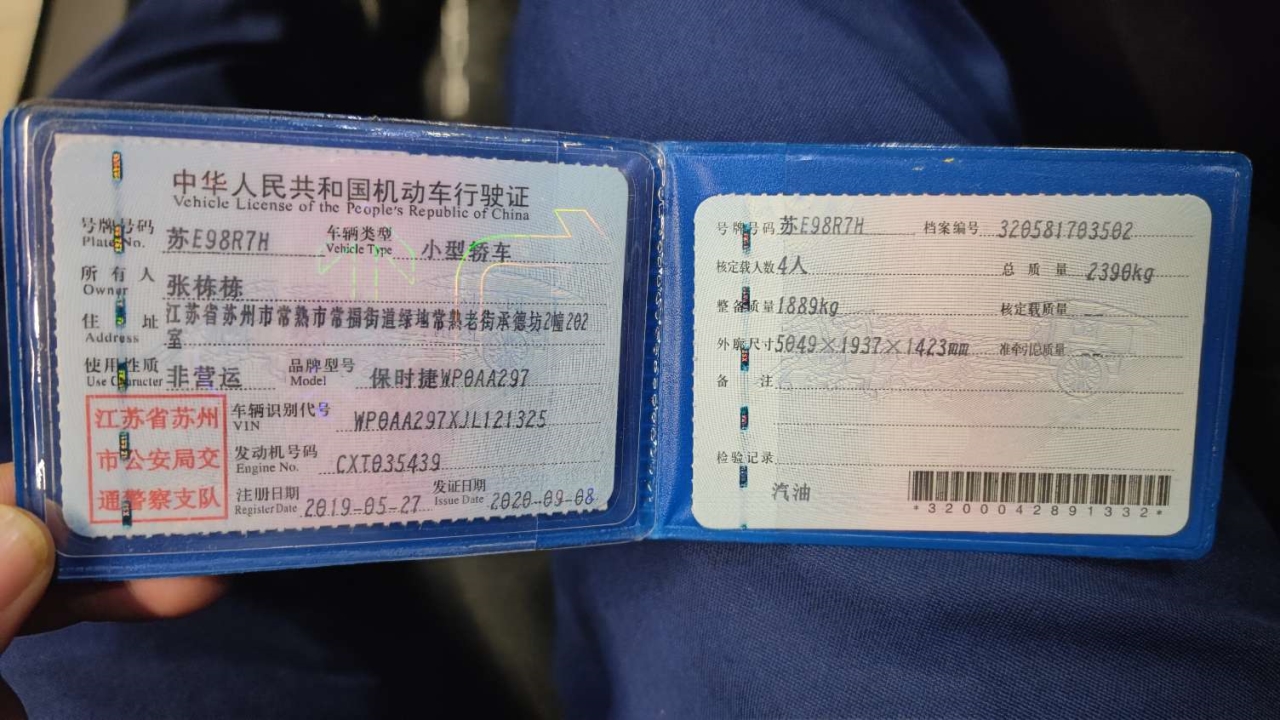 中华人民共和国机动车行驶证
Vehicle License of the People's Republic of China
号牌号码 苏E98R7H 车辆类型 小型轿车
Plate No. Vehicle Type
所有人 张栋栋
Owner
住址 江苏省苏州市常熟市常福街道绿地常熟老街承德坊2幢202
Address 室
使用性质 非营运 品牌型号 保时捷WP0AA297
Use Character Model
江苏省苏州
市公安局交
通警察支队
车辆识别代号 WP0AA297XJL121325
VIN
发动机号码 CXT035439
Engine No.
注册日期 2019-05-27 发证日期 2020-09-08
Register Date Issue Date
号牌号码 苏E98R7H 档案编号 320581703502
核定载人数 4人 总质量 2390kg
整备质量 1889kg 核定载质量 --
外廓尺寸 5049×1937×1423mm 准牵引总质量 --
备注
检验记录
汽油
*3200042891332*